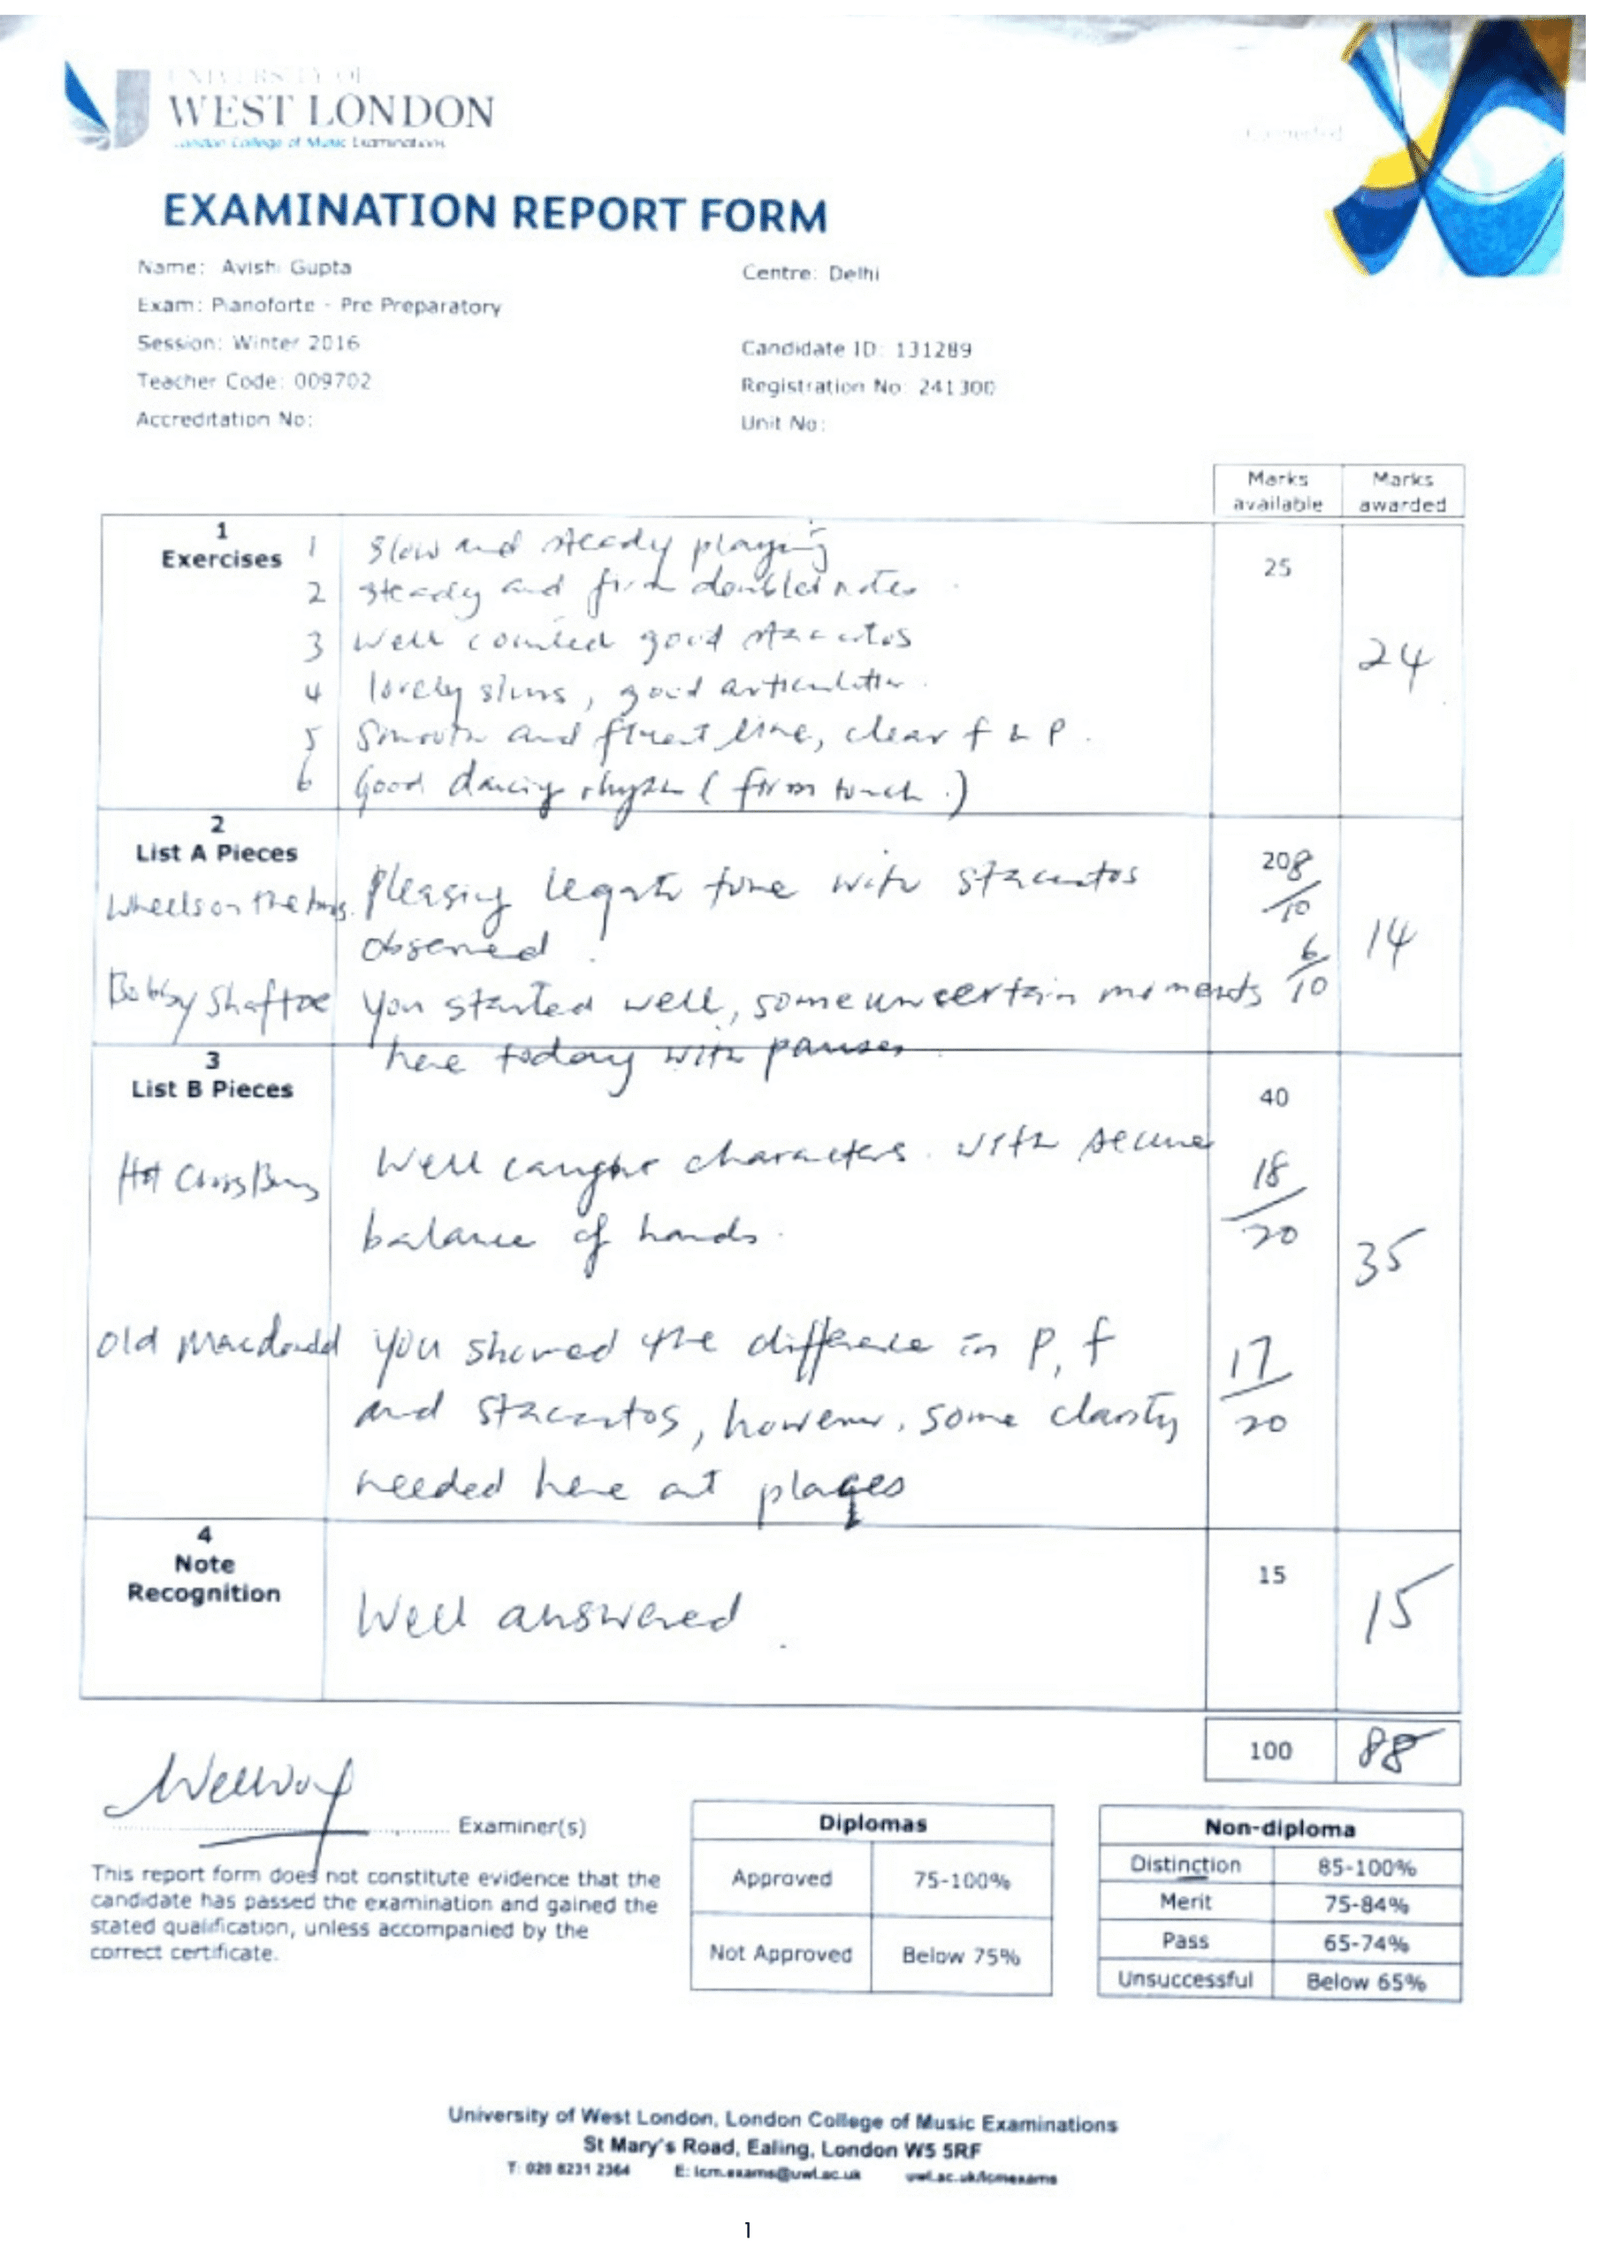 UNIVERSITY OF
WEST LONDON
London College of Music Examinations
EXAMINATION REPORT FORM
Name: Avishi Gupta
Centre: Delhi
Exam: Pianoforte - Pre Preparatory
Session: Winter 2016
Candidate ID: 131289
Teacher Code: 009702
Registration No: 241300
Accreditation No:
Unit No:
Marks available
Marks awarded
1
Exercises
1 Slow and steady playing
2 steady and firm doubled notes
3 Well counted good staccatos
4 lovely slurs, good articulation.
5 Smooth and fluent line, clear f & p.
6 Good dancing rhythm (firm touch.)
25
24
2
List A Pieces
Wheels on the bus.
Pleasing legato tune with staccatos
observed.
20
8/10
Bobby Shaftoe
You started well, some uncertain moments
here today with pauses
6/10
14
3
List B Pieces
40
Hot Cross Buns
Well caught characters. with secure
balance of hands.
18/20
35
Old Macdonald
You showed the difference in p, f
and staccatos, however, some clarity
needed here at places
17/20
4
Note
Recognition
Well answered.
15
15
100
88
Examiner(s)
This report form does not constitute evidence that the
candidate has passed the examination and gained the
stated qualification, unless accompanied by the
correct certificate.
Diplomas
Approved 75-100%
Not Approved Below 75%
Non-diploma
Distinction 85-100%
Merit 75-84%
Pass 65-74%
Unsuccessful Below 65%
University of West London, London College of Music Examinations
St Mary's Road, Ealing, London W5 5RF
T: 020 8231 2364 E: lcm.exams@uwl.ac.uk uwl.ac.uk/lcmexams
1